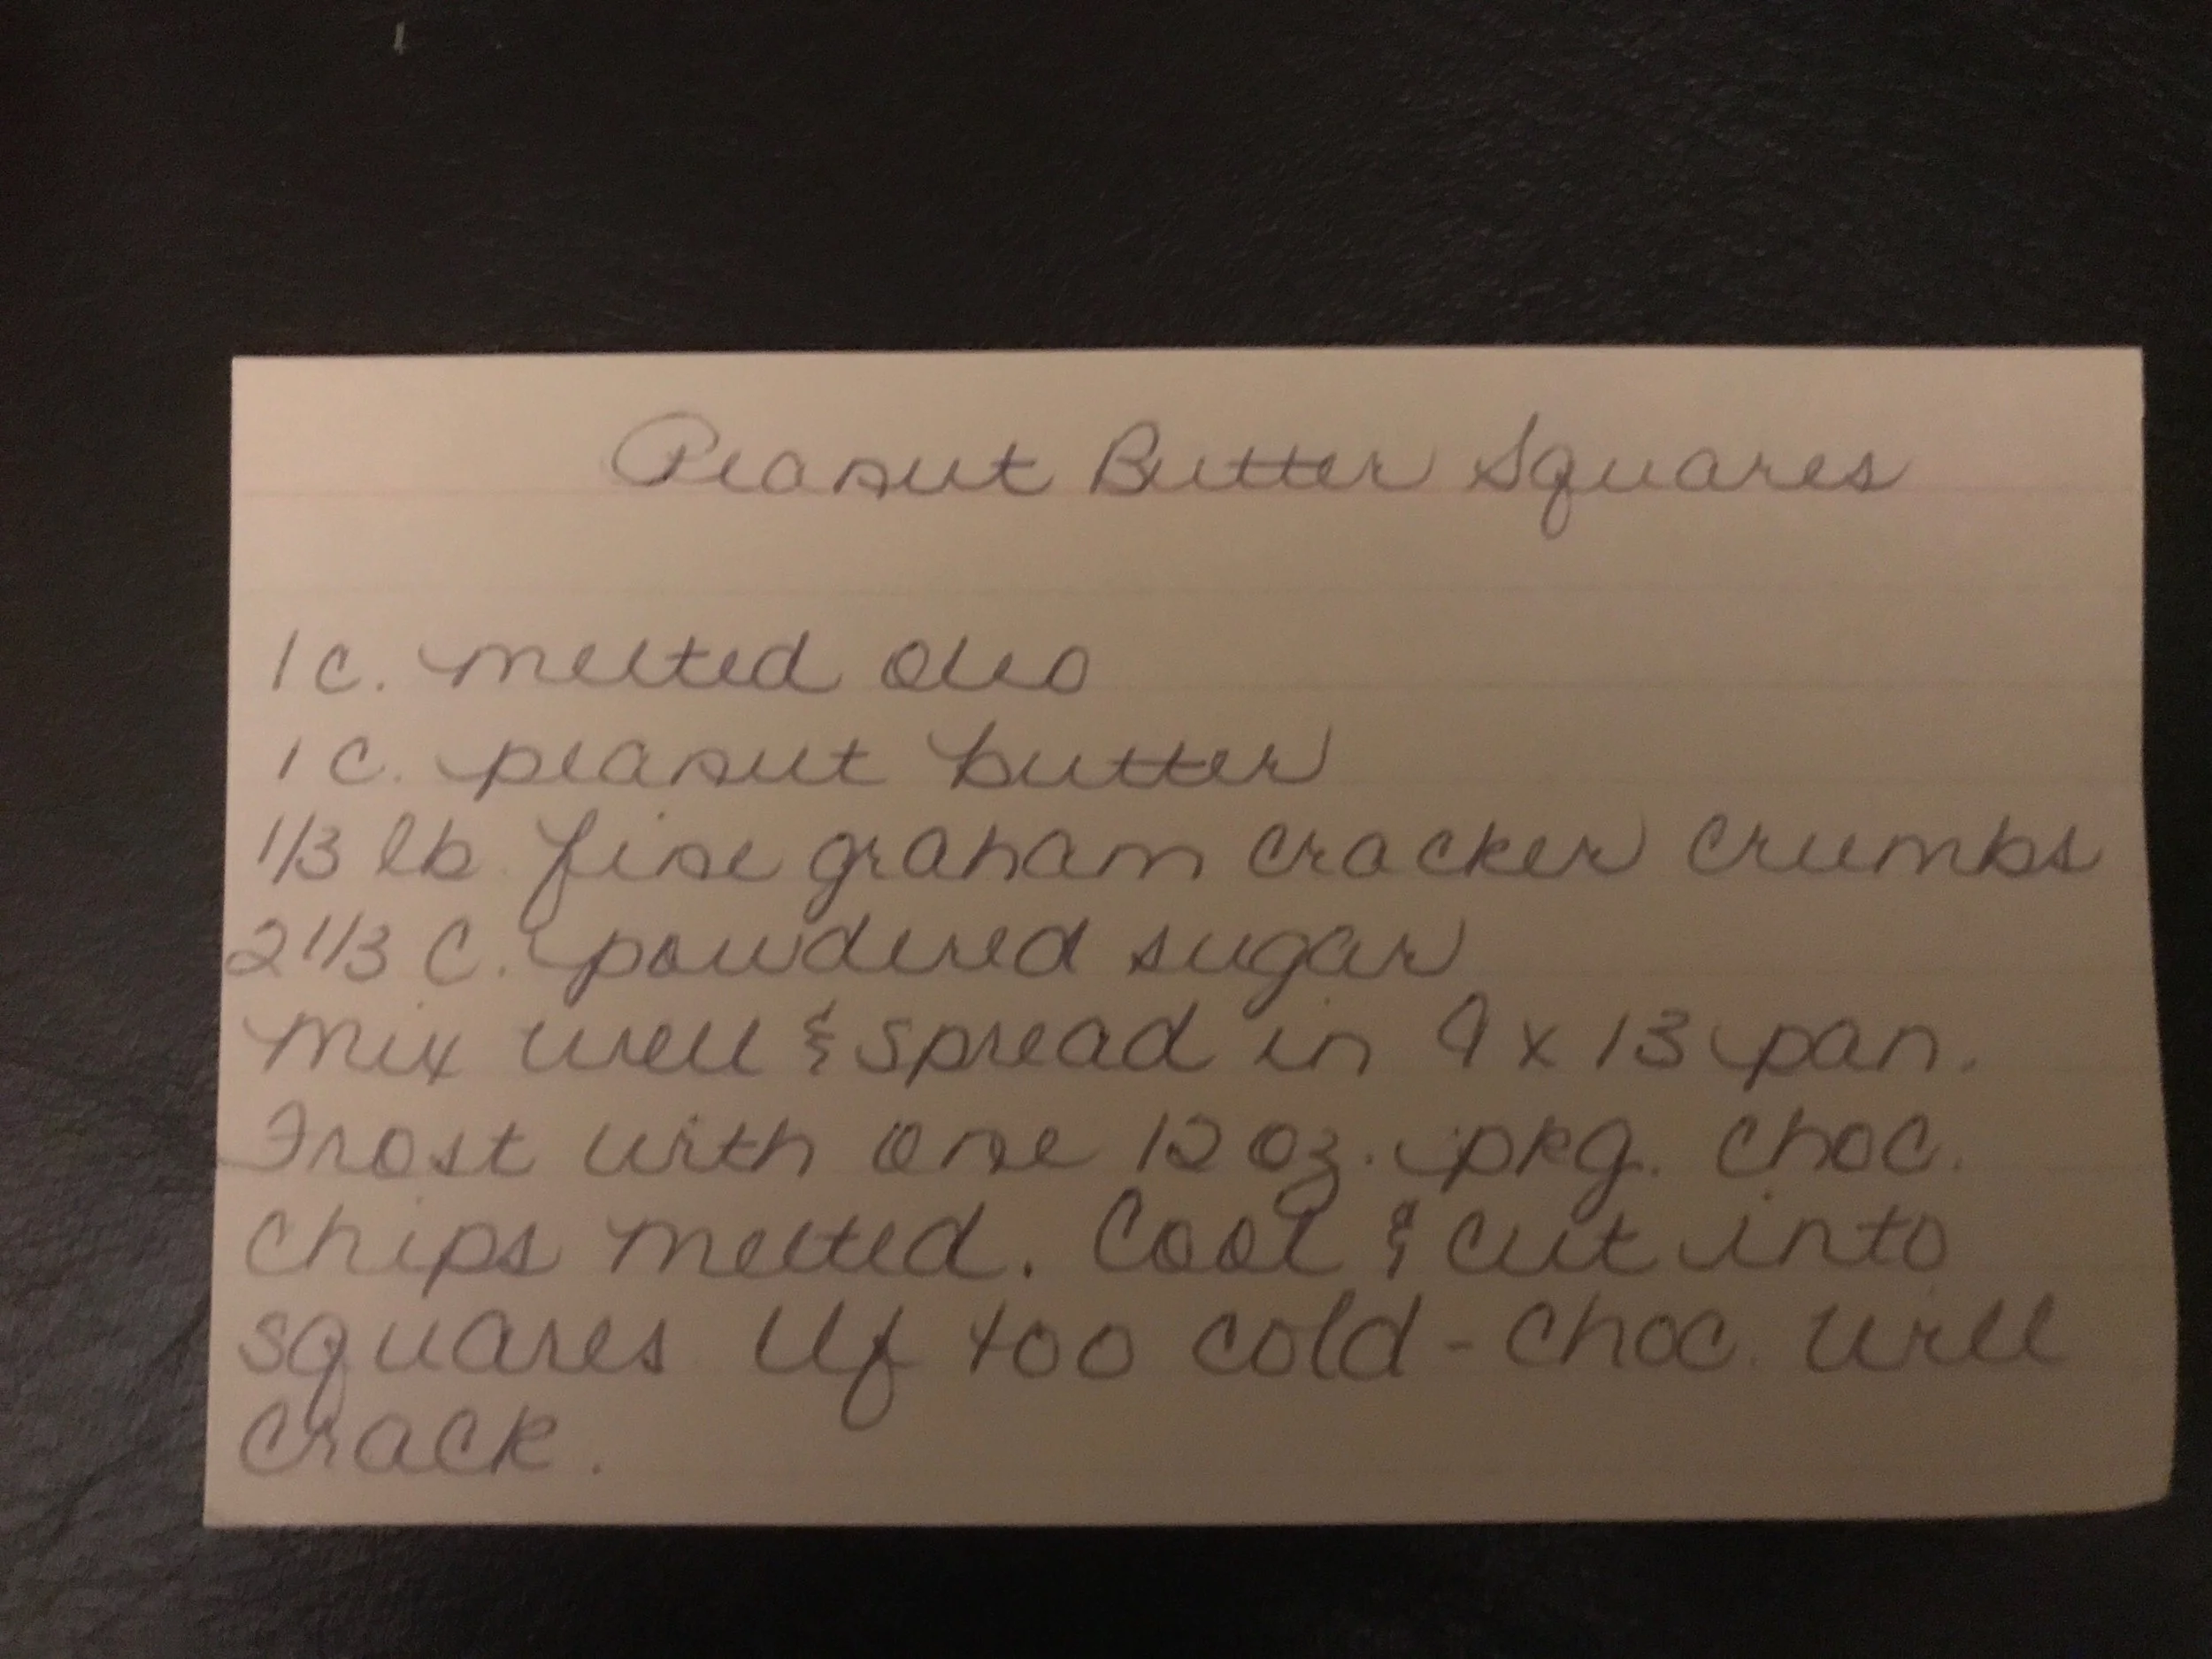 Peanut Butter Squares
1 c. melted oleo
1 c. peanut butter
1/3 lb. fine graham cracker crumbs
2 1/3 c. powdered sugar
Mix well & spread in 9 x 13 pan.
Frost with one 12 oz. pkg. choc.
chips melted. Cool & cut into
squares If too cold - choc. will
crack.